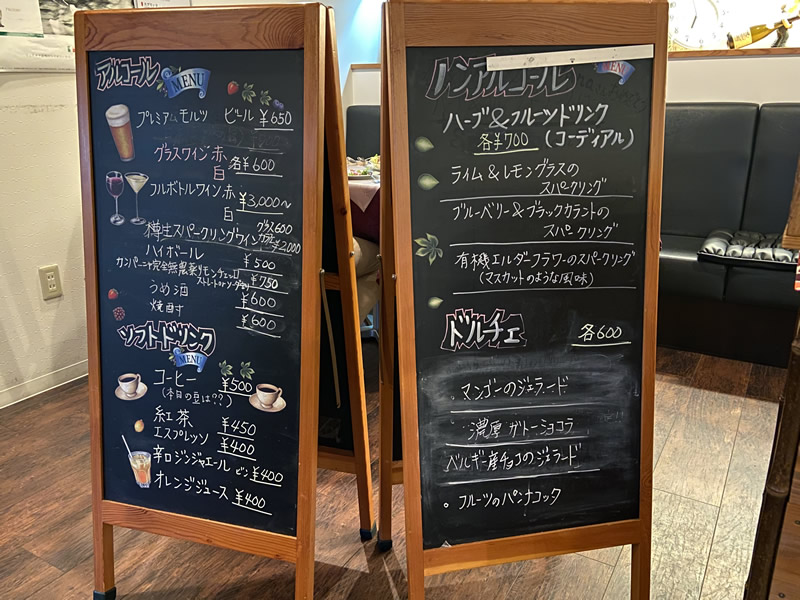 アルコール
MENU
プレミアムモルツ ビール ¥650
グラスワイン 赤
白 各¥600
フルボトルワイン 赤
白 ¥3,000~
樽生スパークリングワイン グラス600
¥2,000
ハイボール ¥500
カンパーニャ完全無農薬リモンチェッロ
ストレートorソーダ割り ¥750
うめ酒 ¥600
焼酎 ¥600
ソフトドリンク
MENU
コーヒー ¥500
(本日の豆は??)
紅茶 ¥450
エスプレッソ ¥400
辛口ジンジャエール ビン ¥400
オレンジジュース ¥400
ノンアルコール
MENU
ハーブ&フルーツドリンク
各¥700 (コーディアル)
ライム&レモングラスの
スパークリング
ブルーベリー&ブラックカラントの
スパークリング
有機エルダーフラワーのスパークリング
(マスカットのような風味)
ドルチェ 各600
・マンゴーのジェラード
・濃厚 ガトーショコラ
ベルギー産チョコのジェラード
。フルーツのパンナコッタ